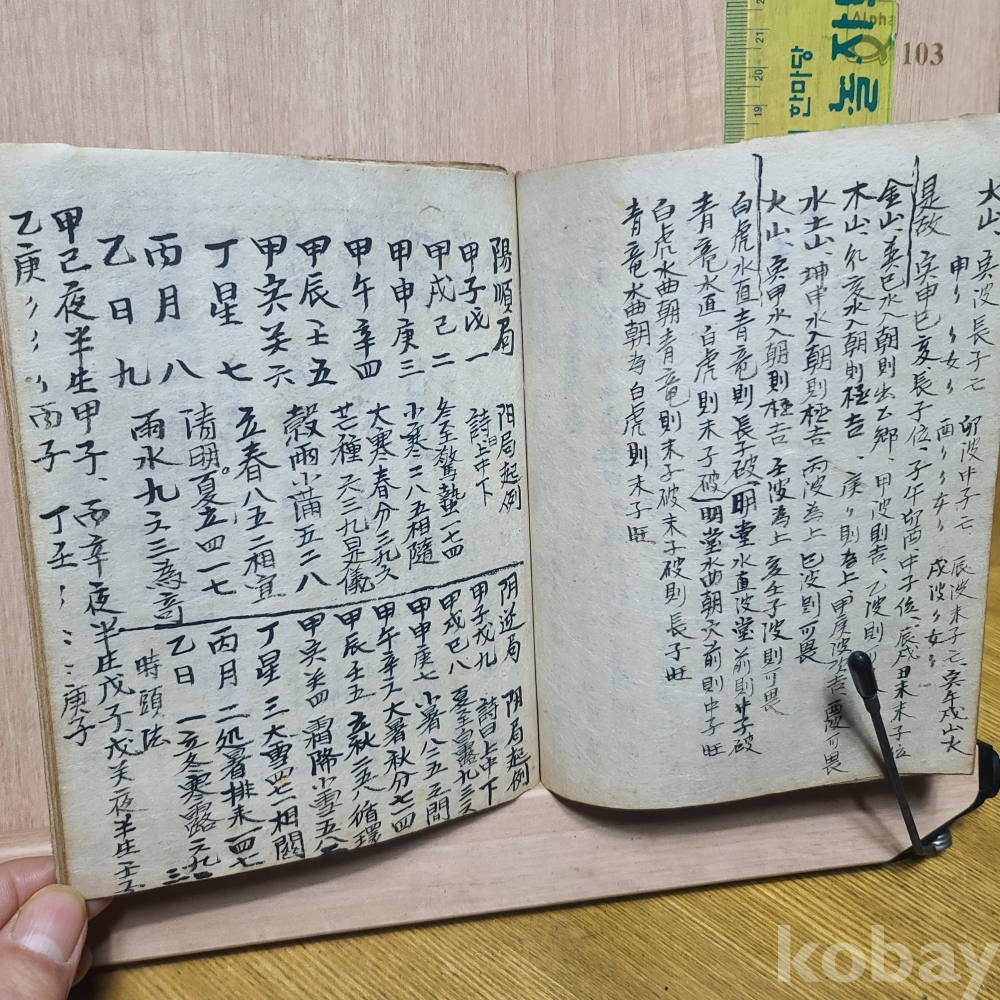 Alpha
103
21
20
19
한마당
놀자
火山、寅波長子亡 卯波中子亡 辰波末子亡 寅午戌山火
是故 寅申巳亥、長子位、子午卯酉中子位、辰戌丑未末子位
金山、巽巳水入朝則出公鄕、甲波則吉、乙波則
木山、乾亥水入朝則極吉、庚
水土山、坤申水入朝則極吉 丙波爲上 巳波則可畏
火山、寅甲水入朝則極吉 壬波為上 亥壬子波則可畏
白虎水直青竜則長子破 明堂水直波堂前則中子破
青竜水直白虎則末子破 明堂水曲朝穴前則中子旺
白虎水曲朝青竜則末子破末子破則長子旺
青竜水曲朝為白虎則末子旺
陽順局
甲子戊一
甲戌己二
甲申庚三
甲午辛四
甲辰壬五
甲寅癸六
丁星 七
丙月 八
乙日 九
陽局起例
詩曰上中下
冬至驚蟄一七四
小寒二八五相隨
大寒春分三九六
芒種六三九是儀
穀雨小滿五二八
立春八五二相宜
清明。夏立四一七
雨水九六三為奇
甲己夜半生甲子、丙辛夜半生戊子戊癸夜半生壬子
乙庚ミミミ丙子 丁壬ミミミミ庚子
時頭法
阴逆局
甲子戊九
甲戌己八
甲申庚七
甲午辛六
甲辰壬五
甲寅癸四
丁星 三
丙月 二
乙日 一
阴局起例
詩曰上中下
夏至白露九三六
小暑八五二間
大暑秋分七一四
立秋二五八循環
霜降小雪五八二
大雪四七一相關
処暑排來一四七
立冬寒露六九三
kobay